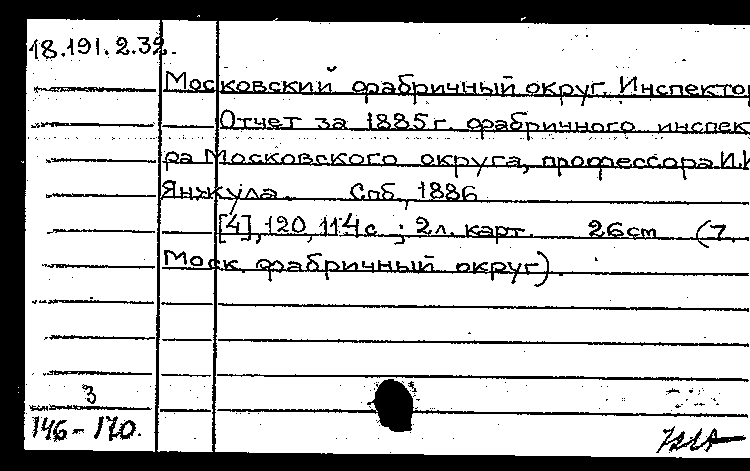 18.191.2.32.
Московский фабричный округ. Инспектор
Отчет за 1885г. фабричного инспек
ра Московского округа, профессора И.И
Янжула. Спб., 1886
[4], 120, 114с ; 2л. карт. 26см (7.
Моск. фабричный округ).
3
146-170.